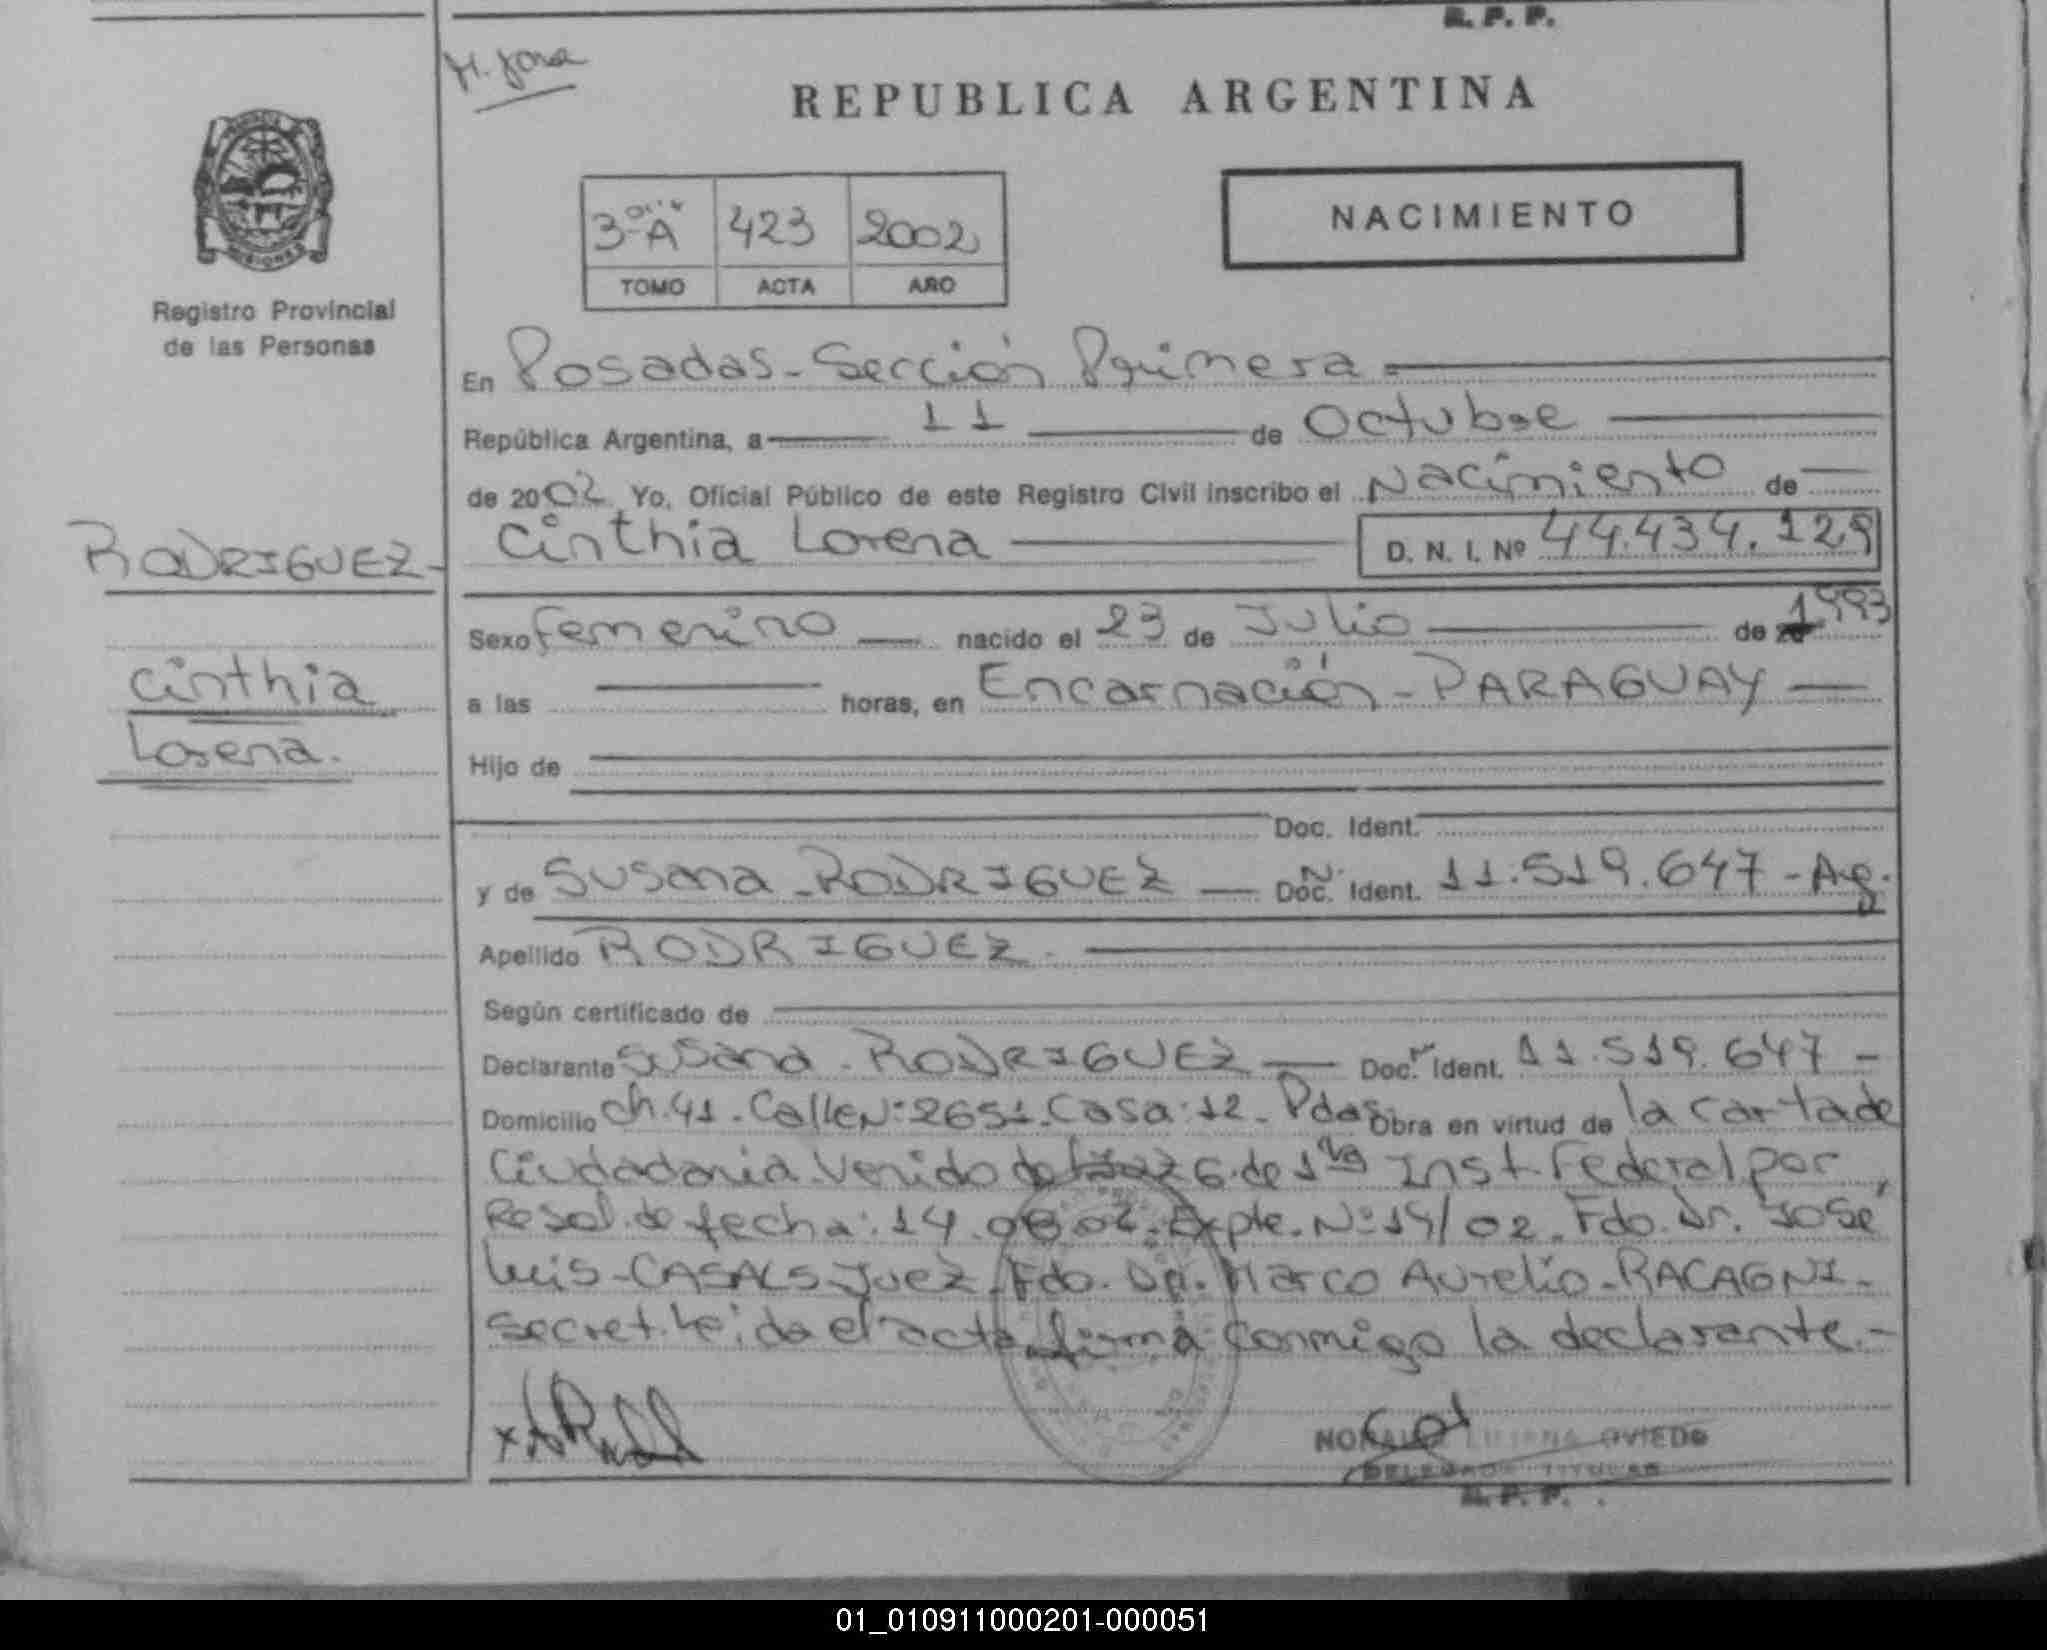 R. P. P.
REPUBLICA ARGENTINA
3º A 423 2002
TOMO ACTA AÑO
NACIMIENTO
MISIONES
Registro Provincial
de las Personas
En Posadas - Sección Primera
República Argentina, a 11 de Octubre
de 2002 Yo, Oficial Público de este Registro Civil inscribo el Nacimiento de
RODRIGUEZ - Cinthia Lorena D. N. I. Nº 44.434.129
Sexo Femenino nacido el 23 de Julio de 1993
Cinthia
a las horas, en Encarnación - PARAGUAY
Lorena.
Hijo de
Doc. Ident.
y de Susana - RODRIGUEZ Doc. Ident. 11.519.647 - Ag.
Apellido RODRIGUEZ.
Según certificado de
Declarante Susana - RODRIGUEZ Doc. Ident. 11.519.647 -
Domicilio Ch. 41 - Calle Nº 2651 - Casa: 12 - Pdas. Obra en virtud de la carta de
Ciudadania Venido de 6. de 1ra Inst. Federal por
Resol. de fecha: 14.08.02. Expte. Nº 14/02. Fdo. Dr. José
Luis - CASALS - Juez. Fdo. Dr. Marco Aurelio - RACAGNI -
Secret. Leida el acta firma conmigo la declarante. -
OVIEDO
DELEGADA TITULAR
R. P. P.
01_010911000201-000051